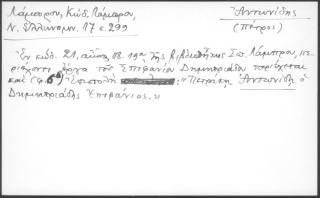 Λάμπρου, Κώδ. Λάμπρου,
Ν. Ἑλληνομν. 17 σ. 299
Ἀντωνίδης
(Πέτρος)
Ἐν κώδ. 21, αἰῶνος 18-19ου τῆς βιβλιοθήκης Σπ. Λάμπρου, πε-
ριέχοντι ἔργα τοῦ Ἐπιφανίου Δημητριάδου περιέχεται
καὶ Ἐπιστολὴ : "Πετράκῃ Ἀντωνίδῃ ὁ
Δημητριάδης Ἐπιφάνιος."